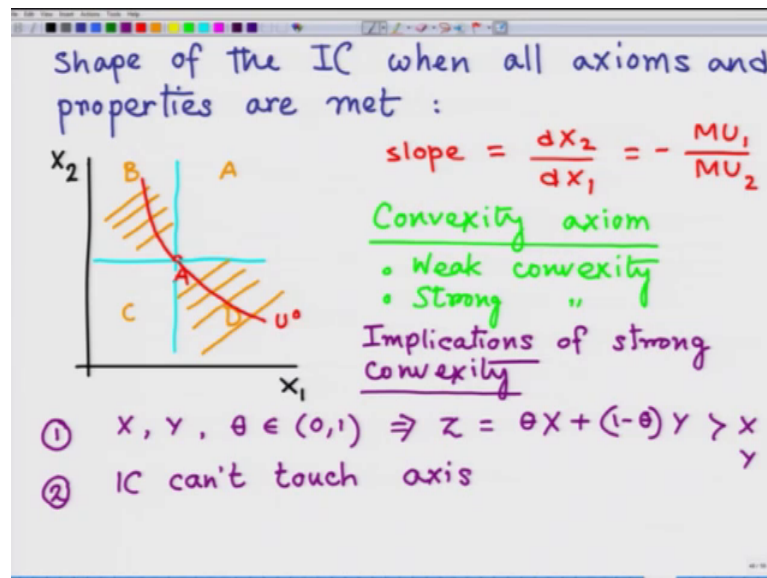 Shape of the IC when all axioms and
properties are met :
X₂
B
A
A
C
D
U⁰
X₁
slope = dX₂/dX₁ = - MU₁/MU₂
Convexity axiom
• Weak convexity
• Strong "
Implications of strong
convexity
① X, Y, θ ∈ (0,1) ⇒ Z = θX + (1-θ) Y > X
Y
② IC can't touch axis